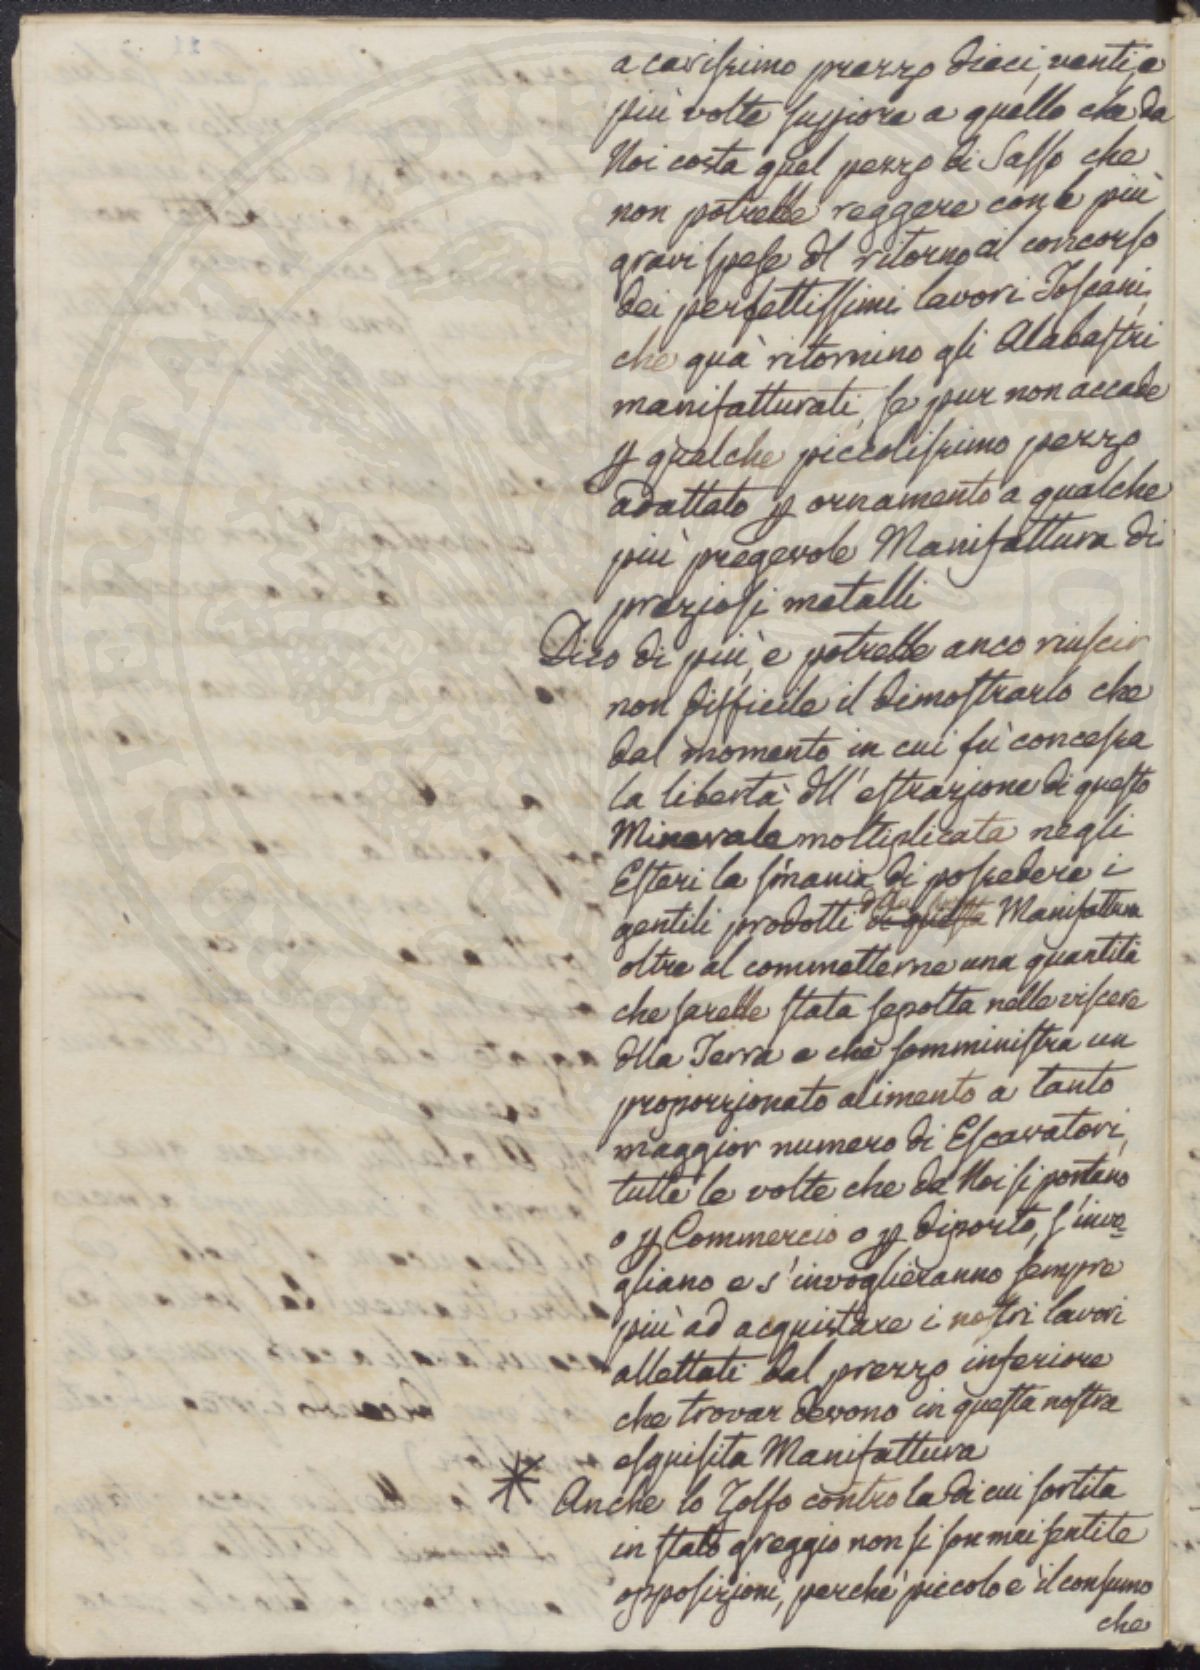 a carissimo prezzo dieci, venti, e
più volte supiore a quello che da
Noi costa quel pezzo di Sasso che
non potrebbe reggere con le più
gravi spese dl ritorno al concorso
dei perfettissimi lavori Toscani,
che quà ritornino gli Alabastri
manifatturati, se pur non accade
p qualche piccolissimo pezzo
adattato p ornamento a qualche
più pregevole Manifattura di
preziosi metalli
Dico di più, e potrebbe anco riuscir
non difficile il dimostrarlo che
dal momento in cui fù concessa
la libertà dll'estrazione di questo
Minerale moltiplicata negli
Esteri la smania di possedere i
gentili prodotti di questa Manifattura
oltre al commetterne una quantità
che sarebbe stata sepolta nelle viscere
dlla Terra e che somministra un
proporzionato alimento a tanto
maggior numero di Escavatori,
tutte le volte che da Noi si portano
o p Commercio o p diporto, s'invo=
gliano e s'invoglieranno sempre
più ad acquistare i nostri lavori
allettati dal prezzo inferiore
che trovar devono in questa nostra
esquisita Manifattura
Anche lo Zolfo contro la di cui sortita
in stato greggio non si son mai sentite
opposizioni, perche piccolo è il consumo
che